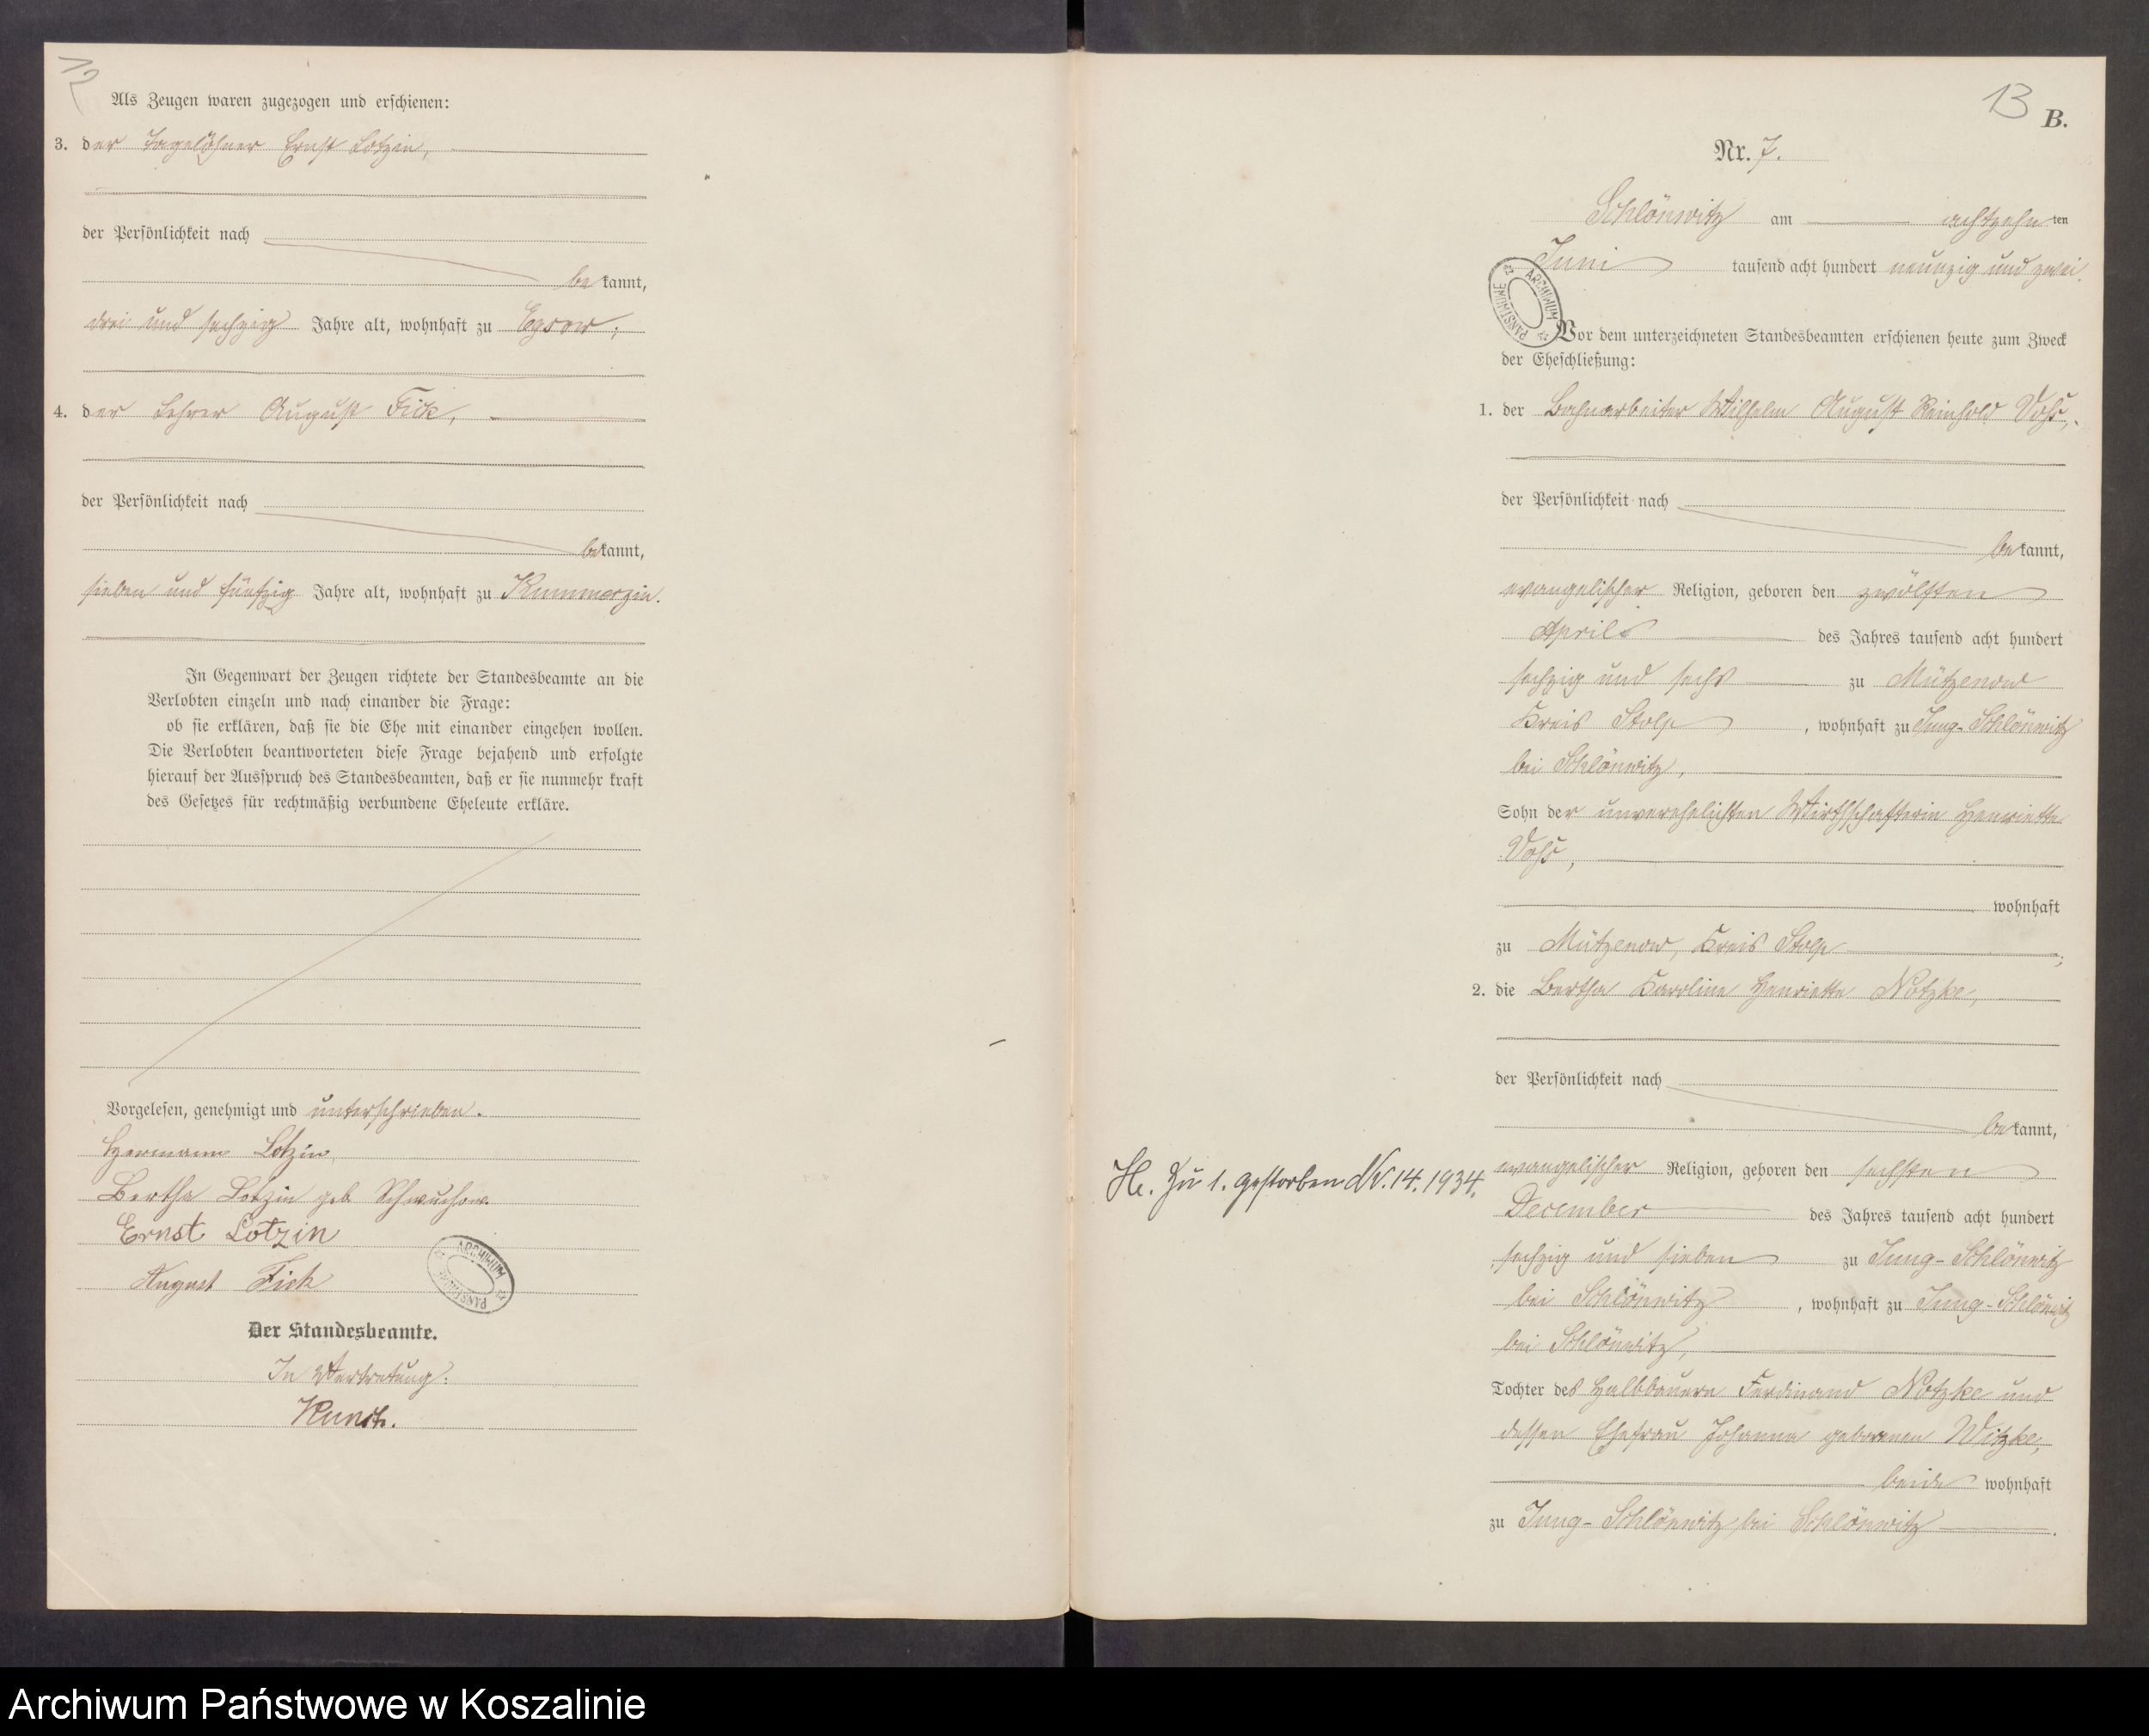 12
Als Zeugen waren zugezogen und erschienen:
3. der Tagelöhner Ernst Lotzin,
der Persönlichkeit nach
bekannt,
drei und sechzig Jahre alt, wohnhaft zu Egsow;
4. der Lehrer August Fick,
der Persönlichkeit nach
bekannt,
sieben und fünfzig Jahre alt, wohnhaft zu Kummerzin.
In Gegenwart der Zeugen richtete der Standesbeamte an die
Verlobten einzeln und nach einander die Frage:
ob sie erklären, daß sie die Ehe mit einander eingehen wollen.
Die Verlobten beantworteten diese Frage bejahend und erfolgte
hierauf der Ausspruch des Standesbeamten, daß er sie nunmehr kraft
des Gesetzes für rechtmäßig verbundene Eheleute erkläre.
Vorgelesen, genehmigt und unterschrieben.
Hermann Lotzin
Bertha Lotzin geb. Schwuchow.
Ernst Lotzin
August Fick
ARCHIWUM PAŃSTWOWE
Der Standesbeamte.
In Vertretung:
13
B.
Nr. 7.
Schlönwitz am achtzehnten
Juni tausend acht hundert neunzig und zwei.
ARCHIWUM PAŃSTWOWE
Vor dem unterzeichneten Standesbeamten erschienen heute zum Zweck
der Eheschließung:
1. der Bahnarbeiter Wilhelm August Reinhold Voß,
der Persönlichkeit nach
bekannt,
evangelischer Religion, geboren den zwölften
April des Jahres tausend acht hundert
sechzig und sechs zu Mützenow
Kreis Stolp, wohnhaft zu Jung-Schlönwitz
bei Schlönwitz,
Sohn der unverehelichten Wirthschafterin Henriette
Voß,
wohnhaft
zu Mützenow, Kreis Stolp;
2. die Bertha Karoline Henriette Notzke,
der Persönlichkeit nach
bekannt,
He. Zu 1. gestorben Nr. 14. 1934.
evangelischer Religion, geboren den sechsten
December des Jahres tausend acht hundert
sechzig und sieben zu Jung-Schlönwitz
bei Schlönwitz, wohnhaft zu Jung-Schlönwitz
bei Schlönwitz,
Tochter des Halbbauern Ferdinand Notzke und
dessen Ehefrau Johanna geborenen Witzke,
beide wohnhaft
zu Jung-Schlönwitz bei Schlönwitz.
Archiwum Państwowe w Koszalinie